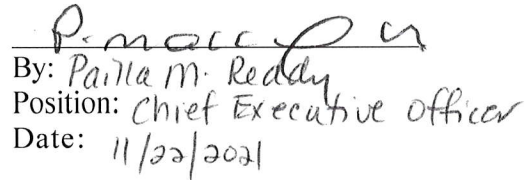 By: Pailla M. Reddy
Position: Chief Executive Officer
Date: 11/22/2021